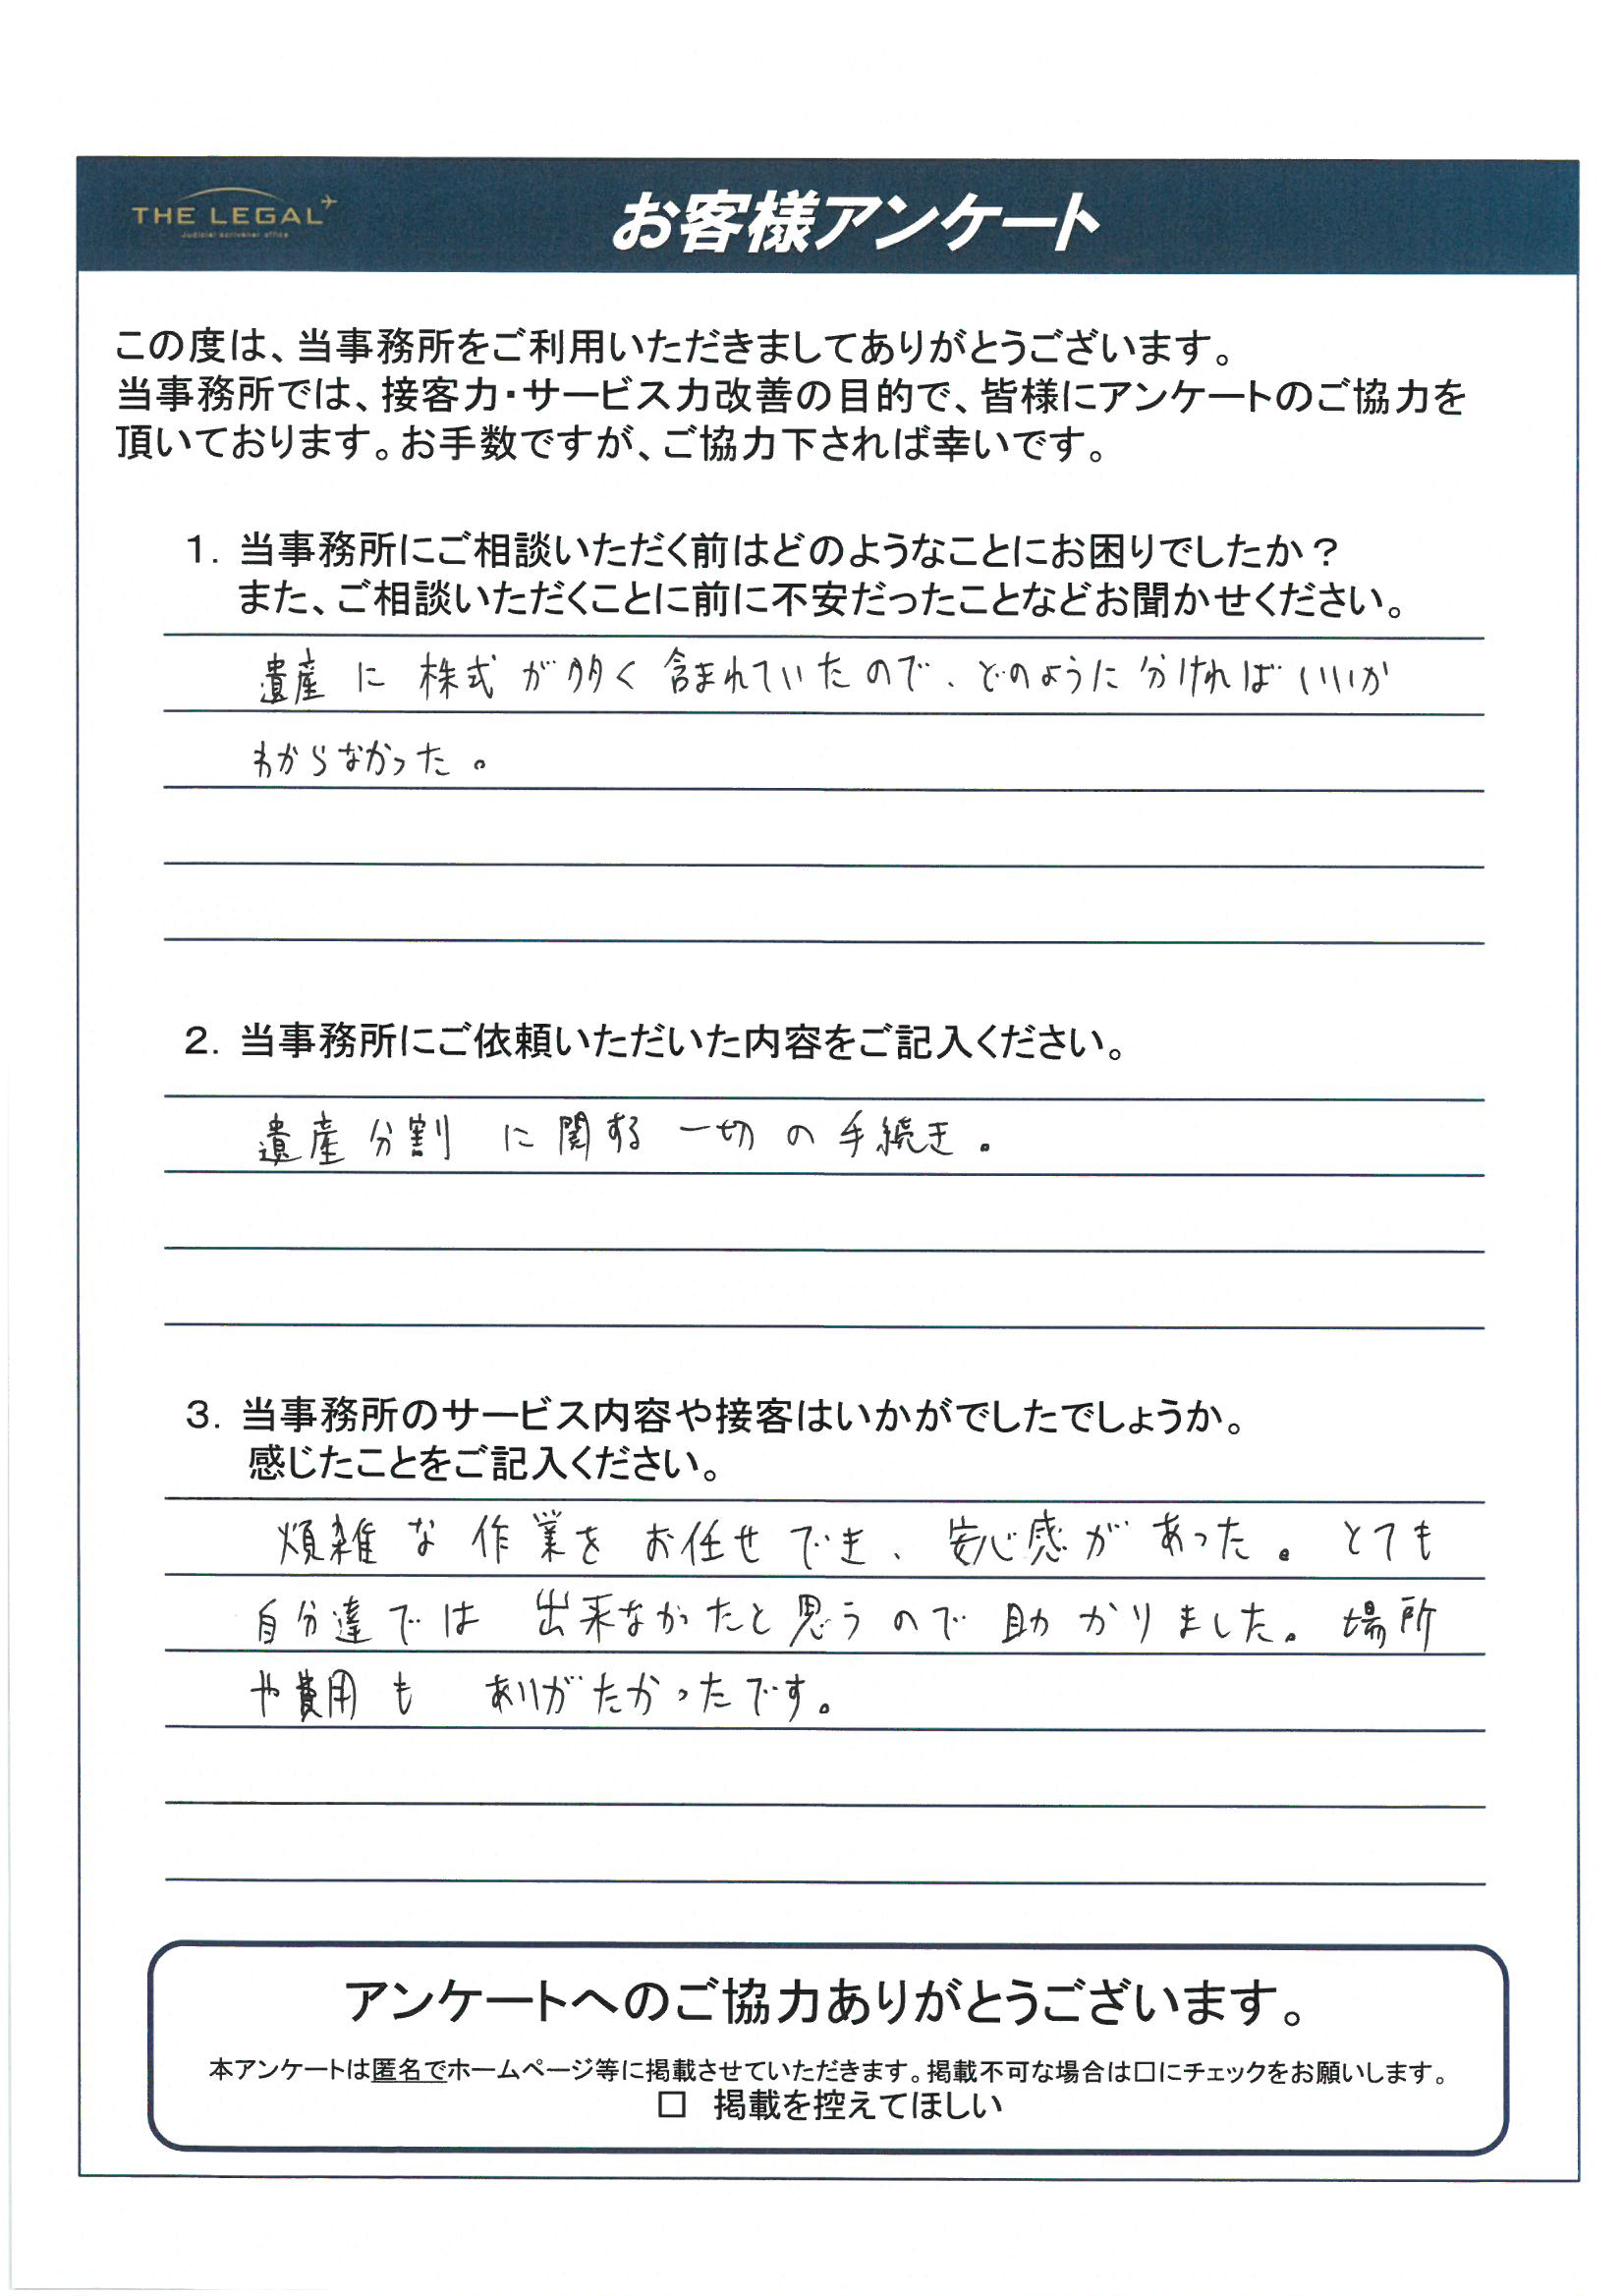 THE LEGAL
Judicial scrivener office
お客様アンケート
この度は、当事務所をご利用いただきましてありがとうございます。
当事務所では、接客力・サービス力改善の目的で、皆様にアンケートのご協力を
頂いております。お手数ですが、ご協力下されば幸いです。
1. 当事務所にご相談いただく前はどのようなことにお困りでしたか？
また、ご相談いただくことに前に不安だったことなどお聞かせください。
遺産に株式が多く含まれていたので、どのように分ければいいか
わからなかった。
2. 当事務所にご依頼いただいた内容をご記入ください。
遺産分割に関する一切の手続き。
3. 当事務所のサービス内容や接客はいかがでしたでしょうか。
感じたことをご記入ください。
煩雑な作業をお任せでき、安心感があった。とても
自分達では出来なかたと思うので助かりました。場所
や費用もありがたかったです。
アンケートへのご協力ありがとうございます。
本アンケートは匿名でホームページ等に掲載させていただきます。掲載不可な場合は□にチェックをお願いします。
□ 掲載を控えてほしい